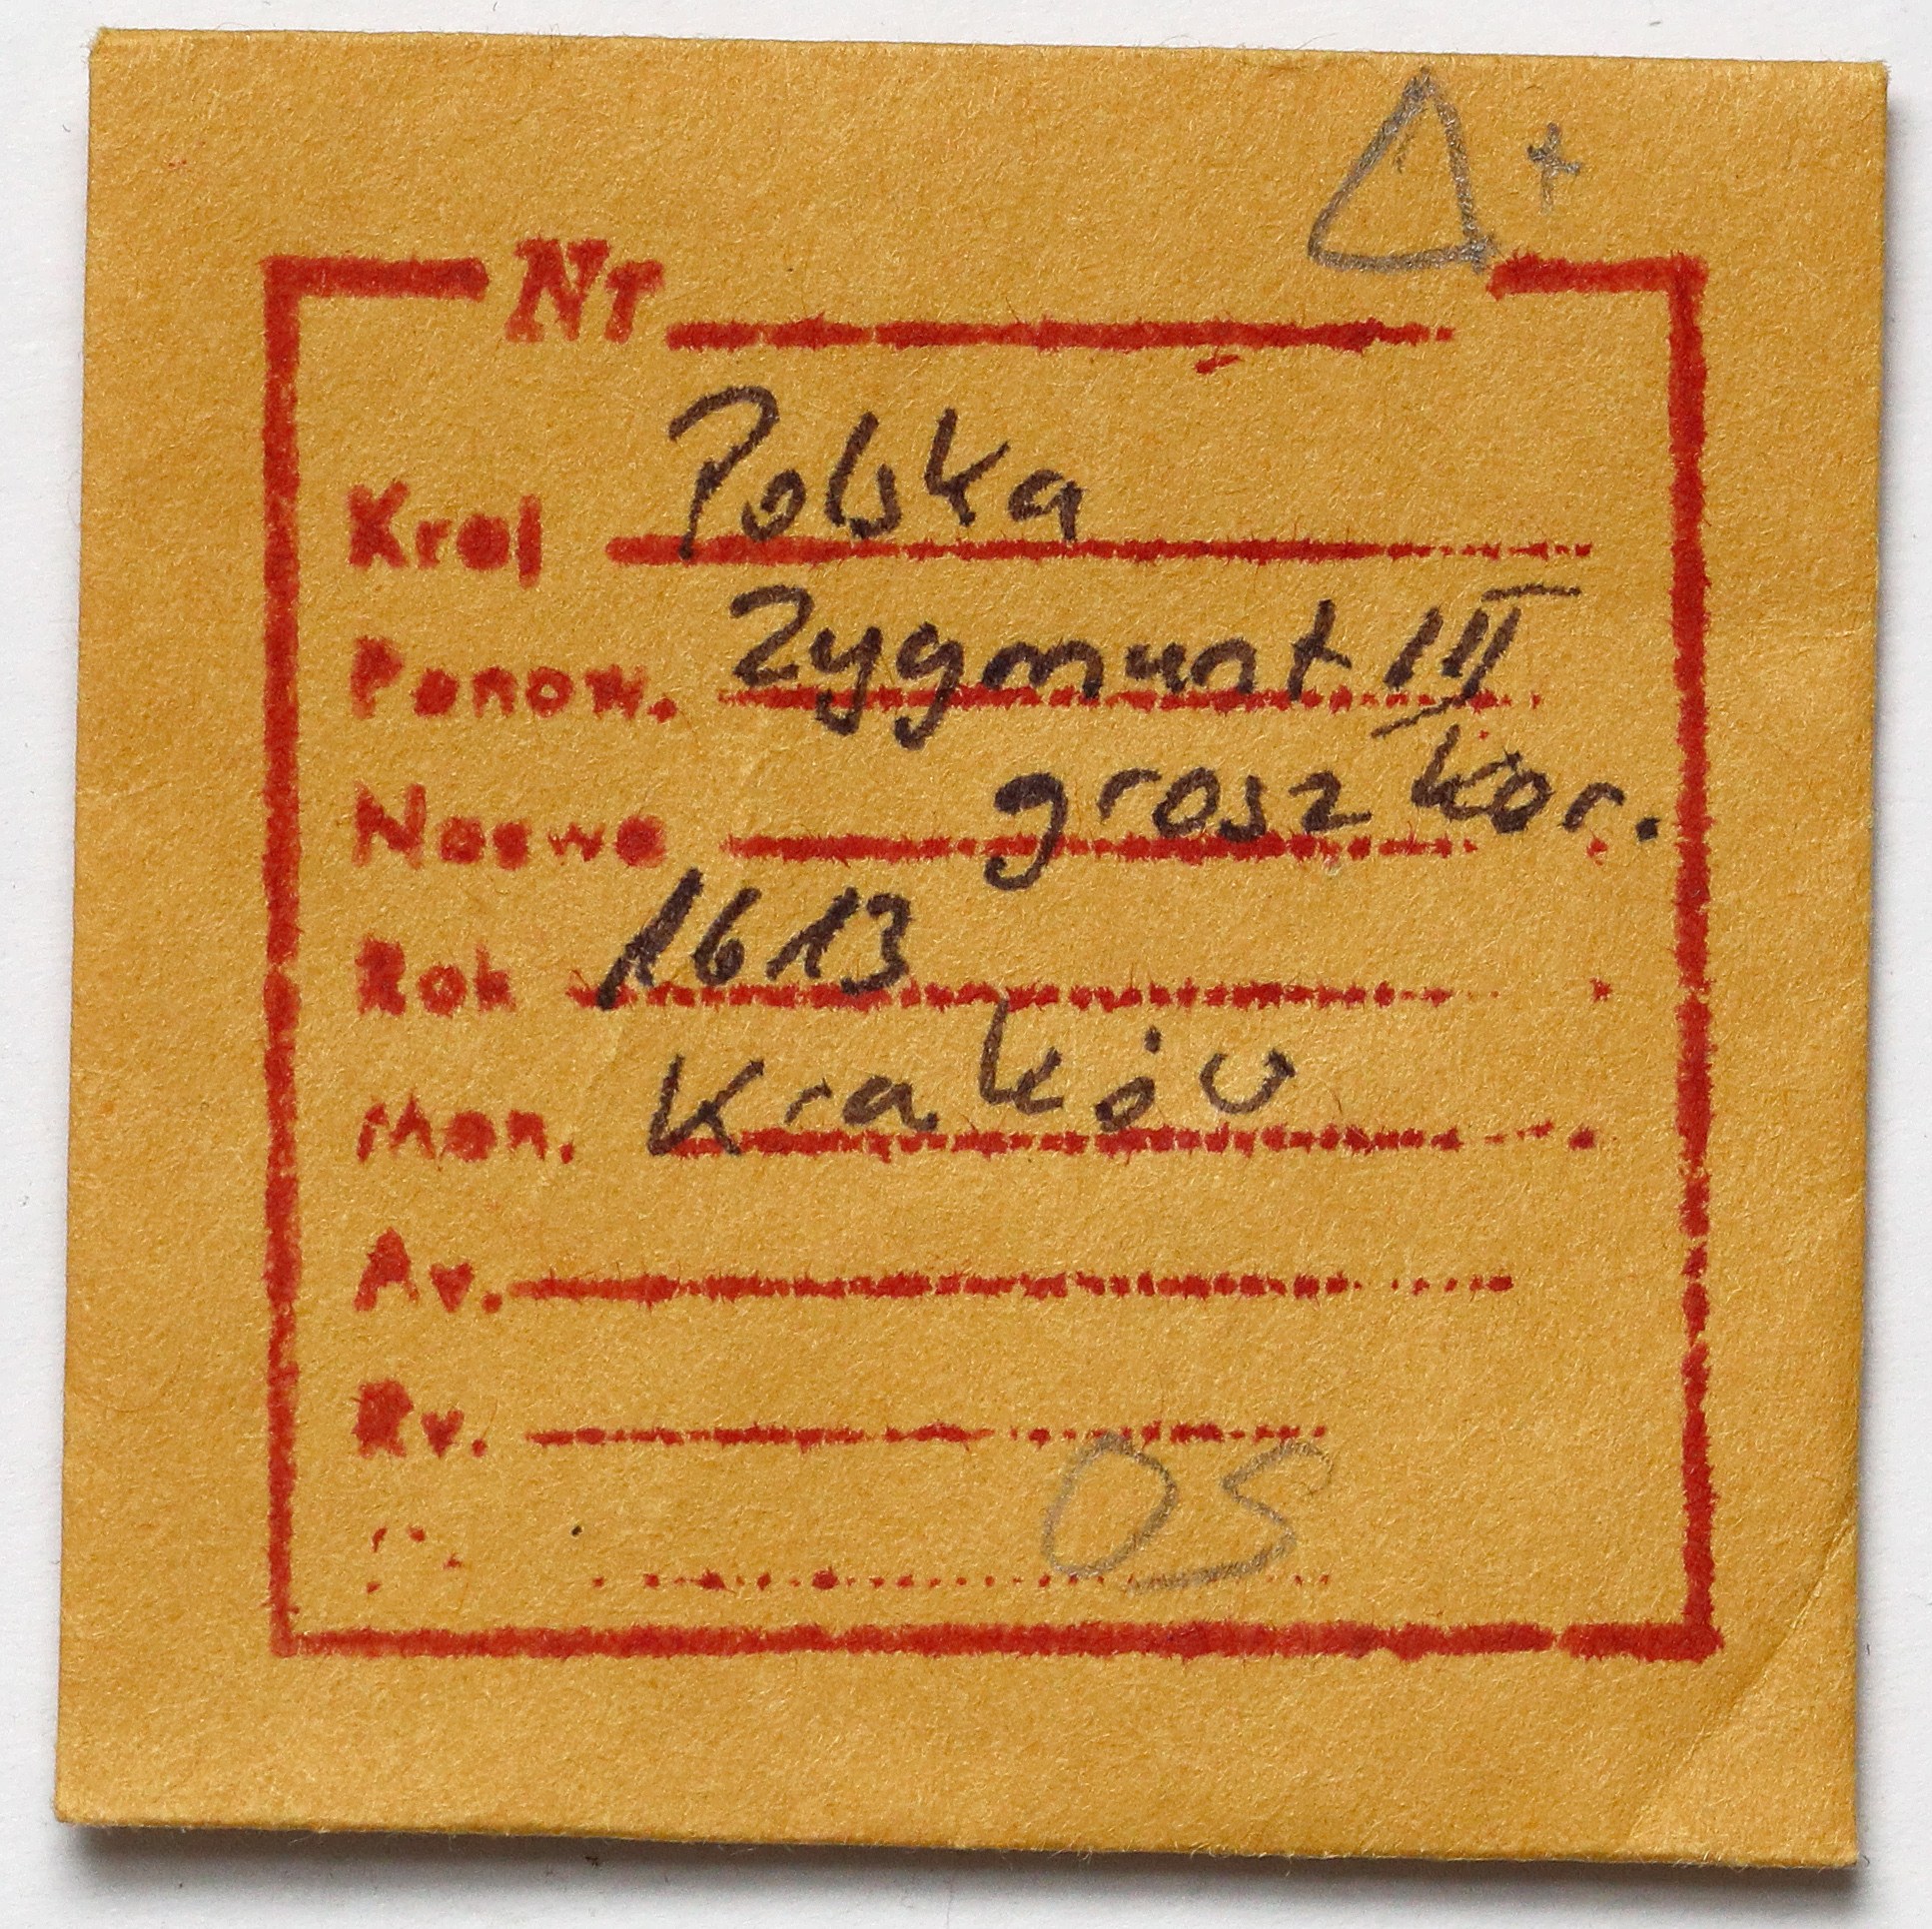 Δ +
Nr
Kraj Polska
Panow. Zygmunt III
Nazwa grosz kor.
Rok 1613
Men. Kraków
Av.
Rv.
OS